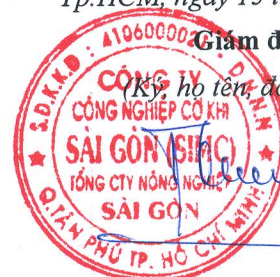 Tp.HCM, ngày 15 t
Giám đ
(Ký, họ tên, đó
S.Đ.K.K.D: 41060000
D.N.N.N
CÔNG TY
CÔNG NGHIỆP CƠ KHÍ
SÀI GÒN (SIMC)
TỔNG CTY NÔNG NGHIỆP
SÀI GÒN
Q.TÂN PHÚ TP. HỒ CHÍ MINH